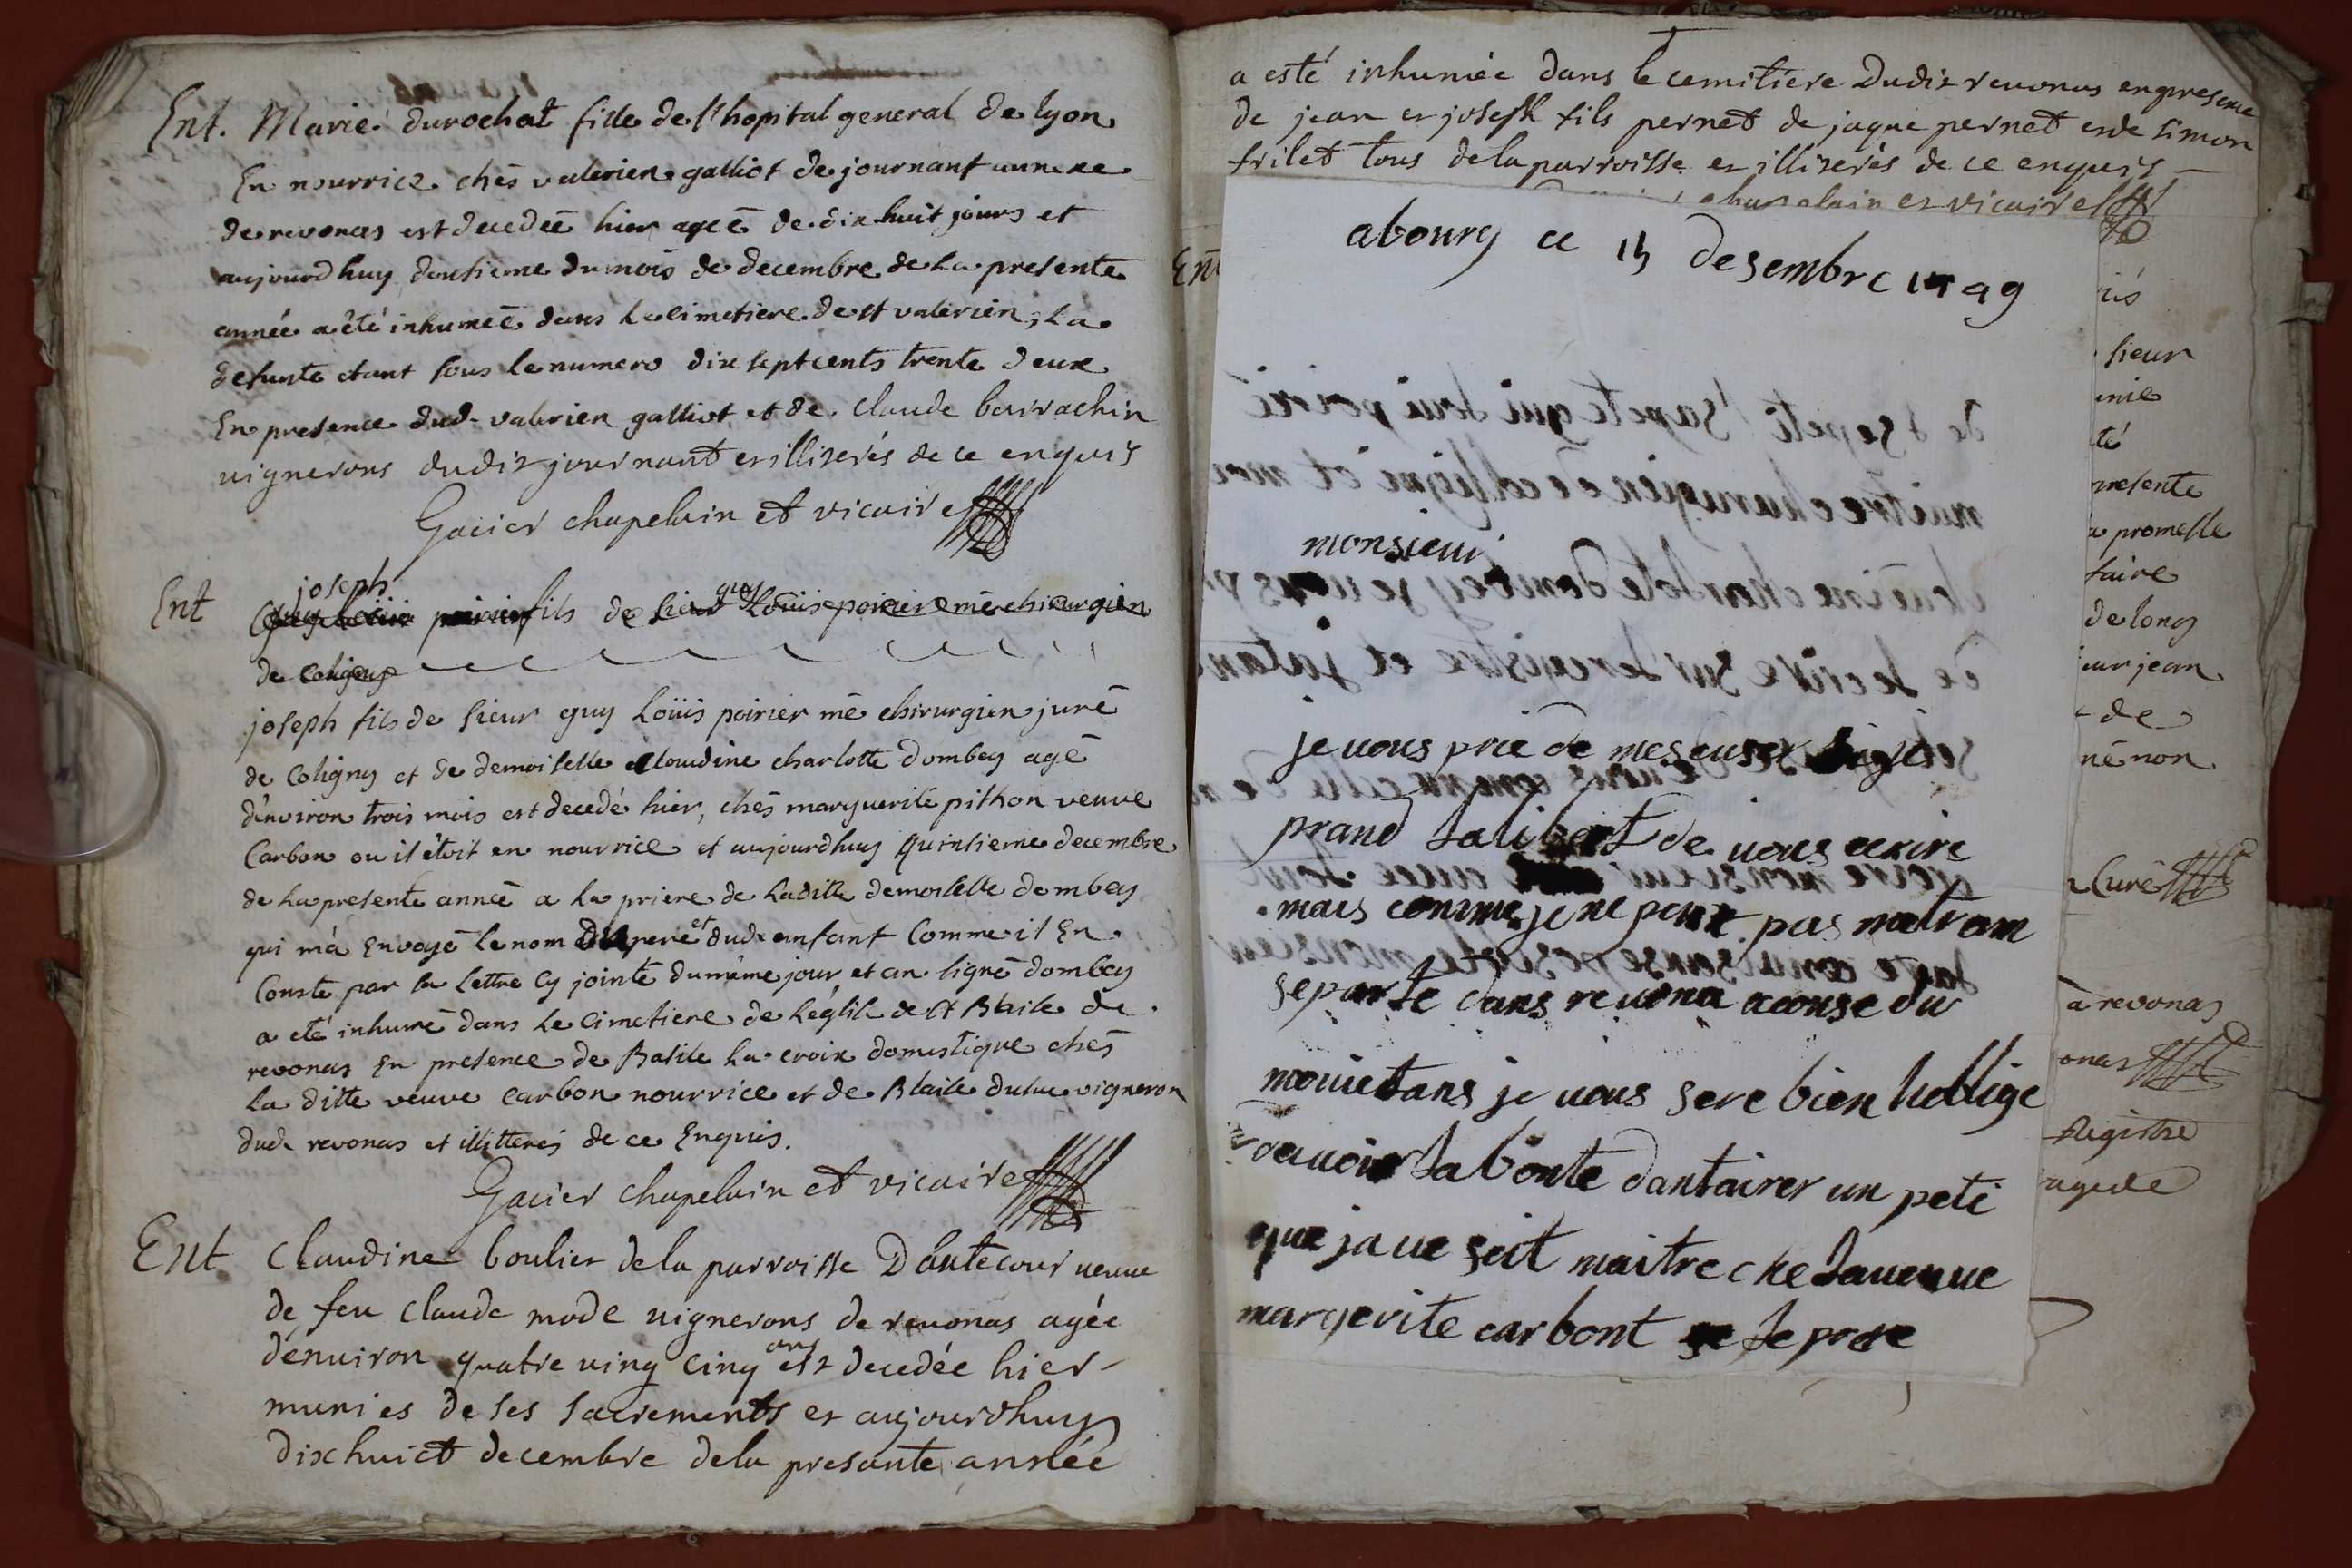 Ent. Marie durochat fille de l'hopital general de lyon
En nourrice chés valerien galliot de journant annexe
de revonas est decedeé hier ageé de dix huit jours et
aujourdhuy dousieme du mois de decembre de la presente
année a été inhumeé dans le cimetiere de st valerien, la
defunte etant sous le numero dix sept cents trente deux
En presence dud. valerien galliot et de claude barrachin
vignerons dudit journant et illiterés de ce enquis
Gacier chapelain et vicaire
joseph
Ent fils de sieur guy Loüis poirier mẽ chirurgien
de coligny
joseph fils de sieur guy Loüis poirier mẽ chirurgien juré
de Coligny et de demoiselle Claudine charlotte dombey agé
d'environ trois mois est decedé hier, chés marguerite pithon veuve
Carbon ou il étoit en nourrice et aujourdhuy quinsieme decembre
de la presente année a la priere de laditte demoiselle dombey
qui m'a Envoyé le nom du pere et dud. enfant Comme il En
Conste par la Lettre cy jointe du même jour et an signé dombey
a eté inhumé dans le cimetiere de l'église de st Blaise de
revonas En presence de Basile la croix domestique chés
la ditte veuve carbon nourrice et de Blaise duluc vigneron
dud. revonas et illitterés de ce Enquis.
Gacier chapelain et vicaire
Ent Claudine boulier de la parroisse Dautecour veuve
de feu claude mode vignerons de revonas agée
dénviron quatre ving cinq ans est decedée hier
munies de ses sacrements et aujourdhuy
dixhuict decembre dela presante année
a esté inhumée dans le cemitiere dudit revonas en presence
de jean et joseph fils pernet de jaque pernet et de simon
frilet tous dela parroisse et illiterés de ce enquis
chapelain et vicaire
Ent
abourg ce 15 desembre 1749
monsieur
je vous prie de mescuser si je
prand la liberté de vous ecrire
mais comme je ne peux pas matran
seporte dans revona acause du
mouvetans je vous sere bien hobligé
davoir la bonte dantairer un peti
que javé seit maitre che laveuve
margerite carbont le pere
sieur
inie
té
presente
promesse
faire
de long
eur jean
de
né non
Curé
à revonas
onas
Registre